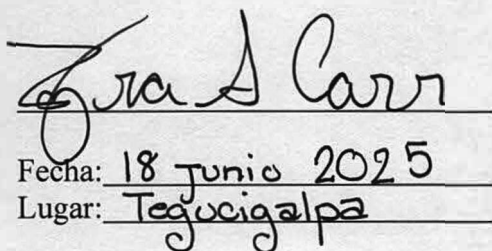 Zra S Carr
Fecha: 18 Junio 2025
Lugar: Tegucigalpa